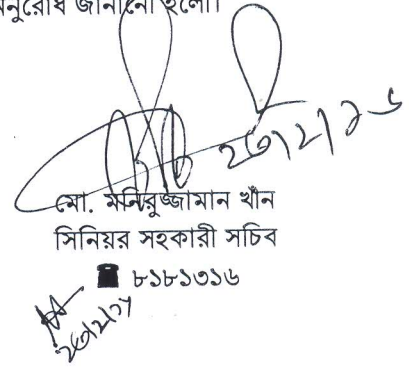 অনুরোধ জানানো হলো।
২৩/২/১৬
মো. মনিরুজ্জামান খাঁন
সিনিয়র সহকারী সচিব
☎ ৮১৮১৩১৬